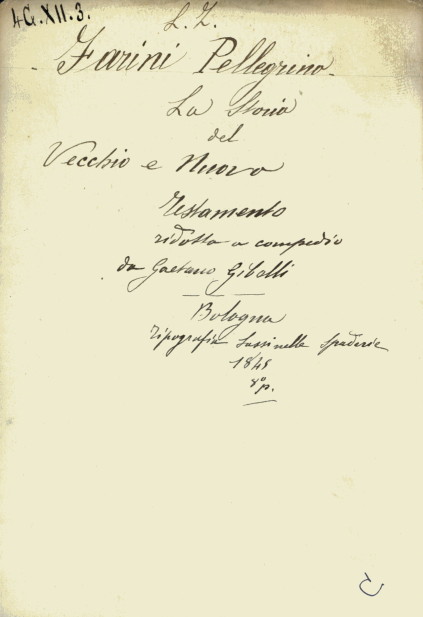 4G.XII.3.
L. Z.
Farini Pellegrino.
La Storia
del
Vecchio e Nuovo
Testamento
ridotta a compedio
da Gaetano Gibelli
Bologna
Tipografia Sassi nelle Spaderie
1845
8º p.